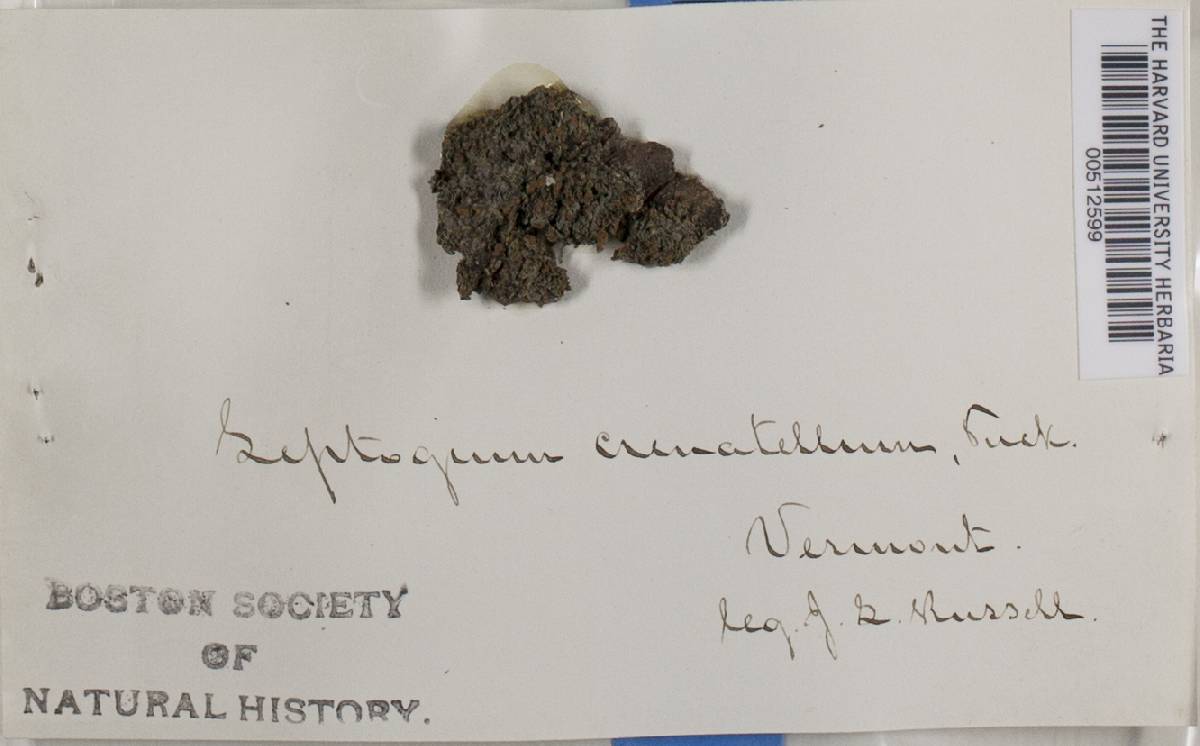 THE HARVARD UNIVERSITY HERBARIA
00512599
Leptogium crenatellum, Tuck.
Vermont.
leg. J. L. Russell.
BOSTON SOCIETY
OF
NATURAL HISTORY.